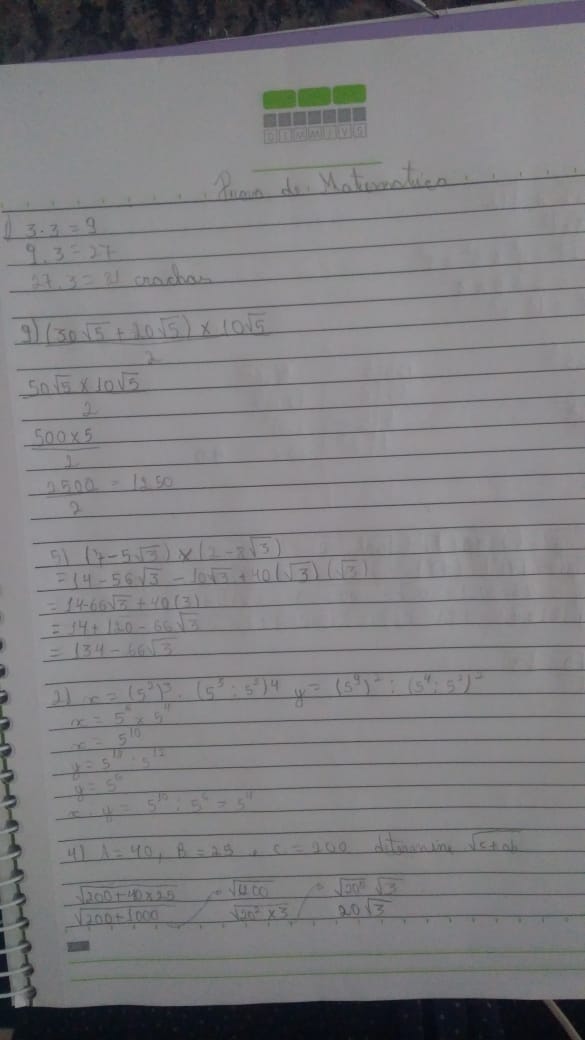 D I M M J V S
Prova de Matematica
1) 3.3 = 9
9.3 = 27
27.3 = 81 crachas
3) (30√5 + 20√5) x 10√5
2
50√5 x 10√5
2
500 x 5
2
2500 = 1250
2
5) (7-5√3) x (2-8√3)
= 14 - 56√3 - 10√3 + 40(√3)(√3)
= 14-66√3 + 40(3)
= 14 + 120 - 66√3
= 134 - 66√3
2) x = (5²)³ . (5³ : 5²)4 y =
x = 5⁶ x 5⁴
x = 5¹⁰
y = 5⁶
x : y = 5¹⁰ : 5⁶ = 5⁴
4) A = 40, B = 25, C = 200 determine √c+ab
√200+40x25 = √1200 = √20² √3
√200+1000 √20² x 3 20√3